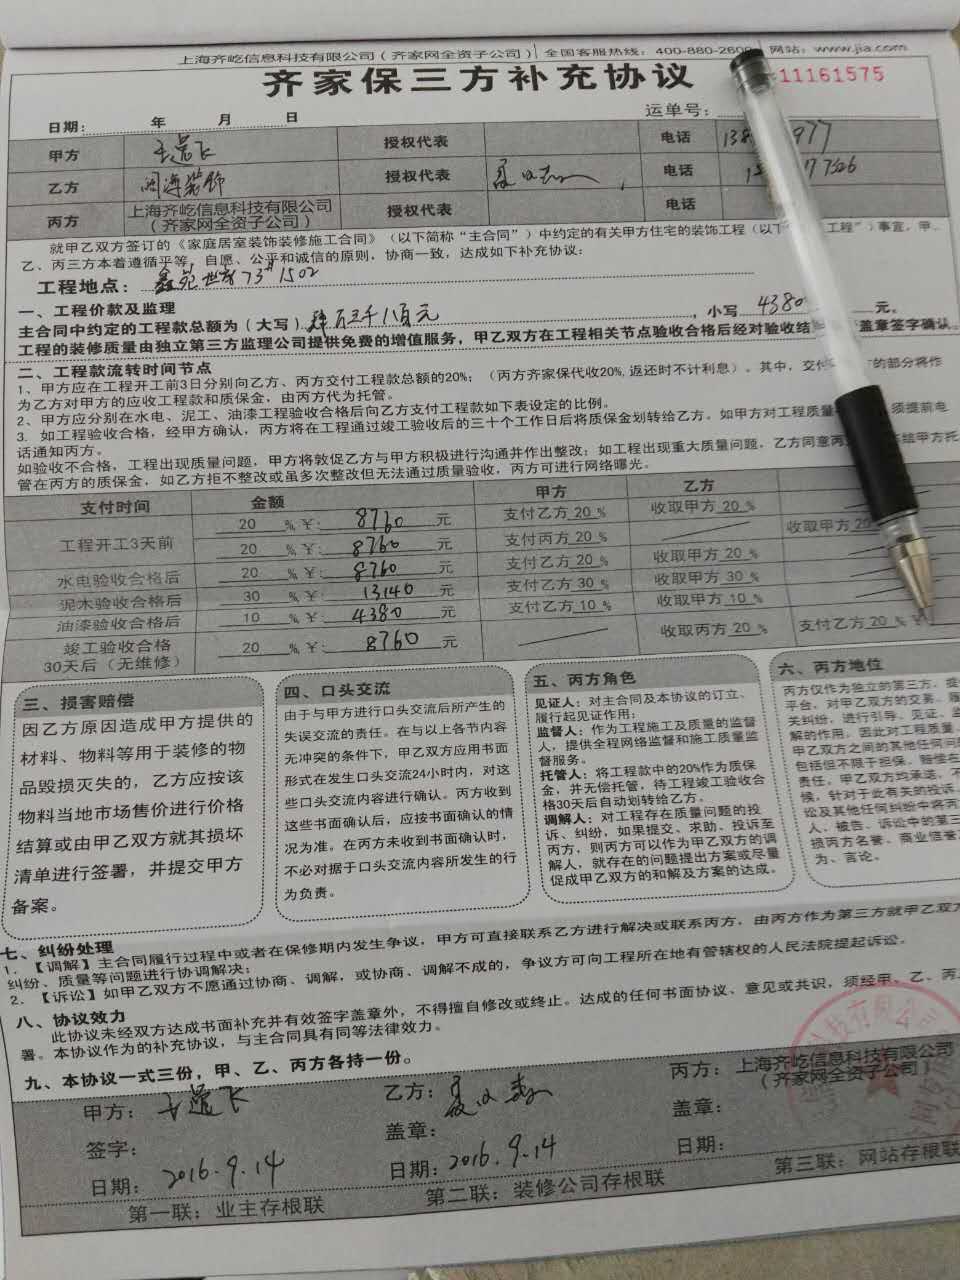 上海齐屹信息科技有限公司（齐家网全资子公司） 全国客服热线：400-880-2600 网站：www.jia.com
齐家保三方补充协议
11161575
日期： 年 月 日 运单号：
甲方 授权代表 电话 977
乙方 闽海装饰 授权代表 电话 7526
丙方 上海齐屹信息科技有限公司（齐家网全资子公司） 授权代表 电话
就甲乙双方签订的《家庭居室装饰装修施工合同》（以下简称“主合同”）中约定的有关甲方住宅的装饰工程（以下 工程”）事宜，甲、
乙、丙三方本着遵循平等，自愿、公平和诚信的原则，协商一致，达成如下补充协议：
工程地点： 鑫苑世家73#1502
一、工程价款及监理
主合同中约定的工程款总额为（大写）肆万三千八百元 ，小写 4380 元。
工程的装修质量由独立第三方监理公司提供免费的增值服务，甲乙双方在工程相关节点验收合格后经对验收结 盖章签字确认。
二、工程款流转时间节点
1、甲方应在工程开工前3日分别向乙方、丙方交付工程款总额的20%；（丙方齐家保代收20%,返还时不计利息）。其中，交付 的部分将作
为乙方对甲方的应收工程款和质保金，由丙方代为托管。
2、甲方应分别在水电、泥工、油漆工程验收合格后向乙方支付工程款如下表设定的比例。
3. 如工程验收合格，经甲方确认，丙方将在工程通过竣工验收后的三十个工作日后将质保金划转给乙方。如甲方对工程质量 须提前电
话通知丙方。
如验收不合格，工程出现质量问题，甲方将敦促乙方与甲方积极进行沟通并作出整改；如工程出现重大质量问题，乙方同意丙 给甲方托
管在丙方的质保金，如乙方拒不整改或虽多次整改但无法通过质量验收，丙方可进行网络曝光。
支付时间 金额 甲方 乙方
工程开工3天前 20 %￥: 8760 元 支付乙方 20 % 收取甲方 20 %
20 %￥: 8760 元 支付丙方 20 % 收取甲方 20
水电验收合格后 20 %￥: 8760 元 支付乙方 20 % 收取甲方 20 %
泥木验收合格后 30 %￥: 13140 元 支付乙方 30 % 收取甲方 30 %
油漆验收合格后 10 %￥: 4380 元 支付乙方 10 % 收取甲方 10 %
竣工验收合格30天后（无维修） 20 %￥: 8760 元 收取丙方 20 % 支付乙方 20 %￥
三、损害赔偿
因乙方原因造成甲方提供的
材料、物料等用于装修的物
品毁损灭失的，乙方应按该
物料当地市场售价进行价格
结算或由甲乙双方就其损坏
清单进行签署，并提交甲方
备案。
四、口头交流
由于与甲方进行口头交流后所产生的
失误交流的责任。在与以上各节内容
无冲突的条件下，甲乙双方应用书面
形式在发生口头交流24小时内，对这
些口头交流内容进行确认。丙方收到
这些书面确认后，应按书面确认的情
况为准。在丙方未收到书面确认时，
不必对据于口头交流内容所发生的行
为负责。
五、丙方角色
见证人：对主合同及本协议的订立、
履行起见证作用；
监督人：作为工程施工及质量的监督
人，提供全程网络监督和施工质量监
督服务。
托管人：将工程款中的20%作为质保
金，并无偿托管，待工程竣工验收合
格30天后自动划转给乙方。
调解人：对工程存在质量问题的投
诉、纠纷，如果提交、求助、投诉至
丙方，则丙方可以作为甲乙双方的调
解人，就存在的问题提出方案或尽量
促成甲乙双方的和解及方案的达成。
六、丙方地位
丙方仅作为独立的第三方，提
平台，对甲乙双方的交易、履
关纠纷，进行引导、见证、监
解的作用，因此对工程质量、
甲乙双方之间的其他任何问
包括但不限于担保、赔偿在
责任，甲乙双方均承诺，不
候，针对于此有关的投诉、
讼及其他任何纠纷中将丙
人、被告、诉讼中的第三
损丙方名誉、商业信誉
为、言论。
七、纠纷处理
1.【调解】主合同履行过程中或者在保修期内发生争议，甲方可直接联系乙方进行解决或联系丙方，由丙方作为第三方就甲乙双方
纠纷、质量等问题进行协调解决；
2.【诉讼】如甲乙双方不愿通过协商、调解，或协商、调解不成的，争议方可向工程所在地有管辖权的人民法院提起诉讼。
八、协议效力
此协议未经双方达成书面补充并有效签字盖章外，不得擅自修改或终止。达成的任何书面协议、意见或共识，须经甲、乙、丙
署。本协议作为的补充协议，与主合同具有同等法律效力。
九、本协议一式三份，甲、乙、丙方各持一份。
甲方： 乙方： 丙方：上海齐屹信息科技有限公司（齐家网全资子公司）
签字： 盖章： 盖章：
日期： 2016.9.14 日期：2016.9.14 日期：
第一联：业主存根联 第二联：装修公司存根联 第三联：网站存根联